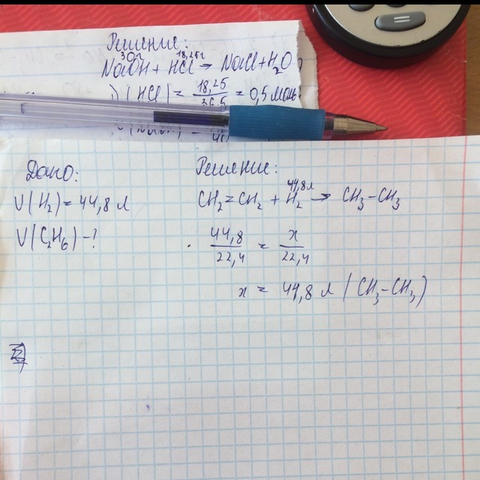 Решение:
30г 18,25г
NaOH + HCl → NaCl + H₂O
ν(HCl) = 18,25/36,5 = 0,5 моль
Дано:
V(H₂) = 44,8 л
V(C₂H₆) - ?
Решение:
44,8 л
CH₂=CH₂ + H₂ → CH₃-CH₃
44,8/22,4 = x/22,4
x = 44,8 л (CH₃-CH₃)